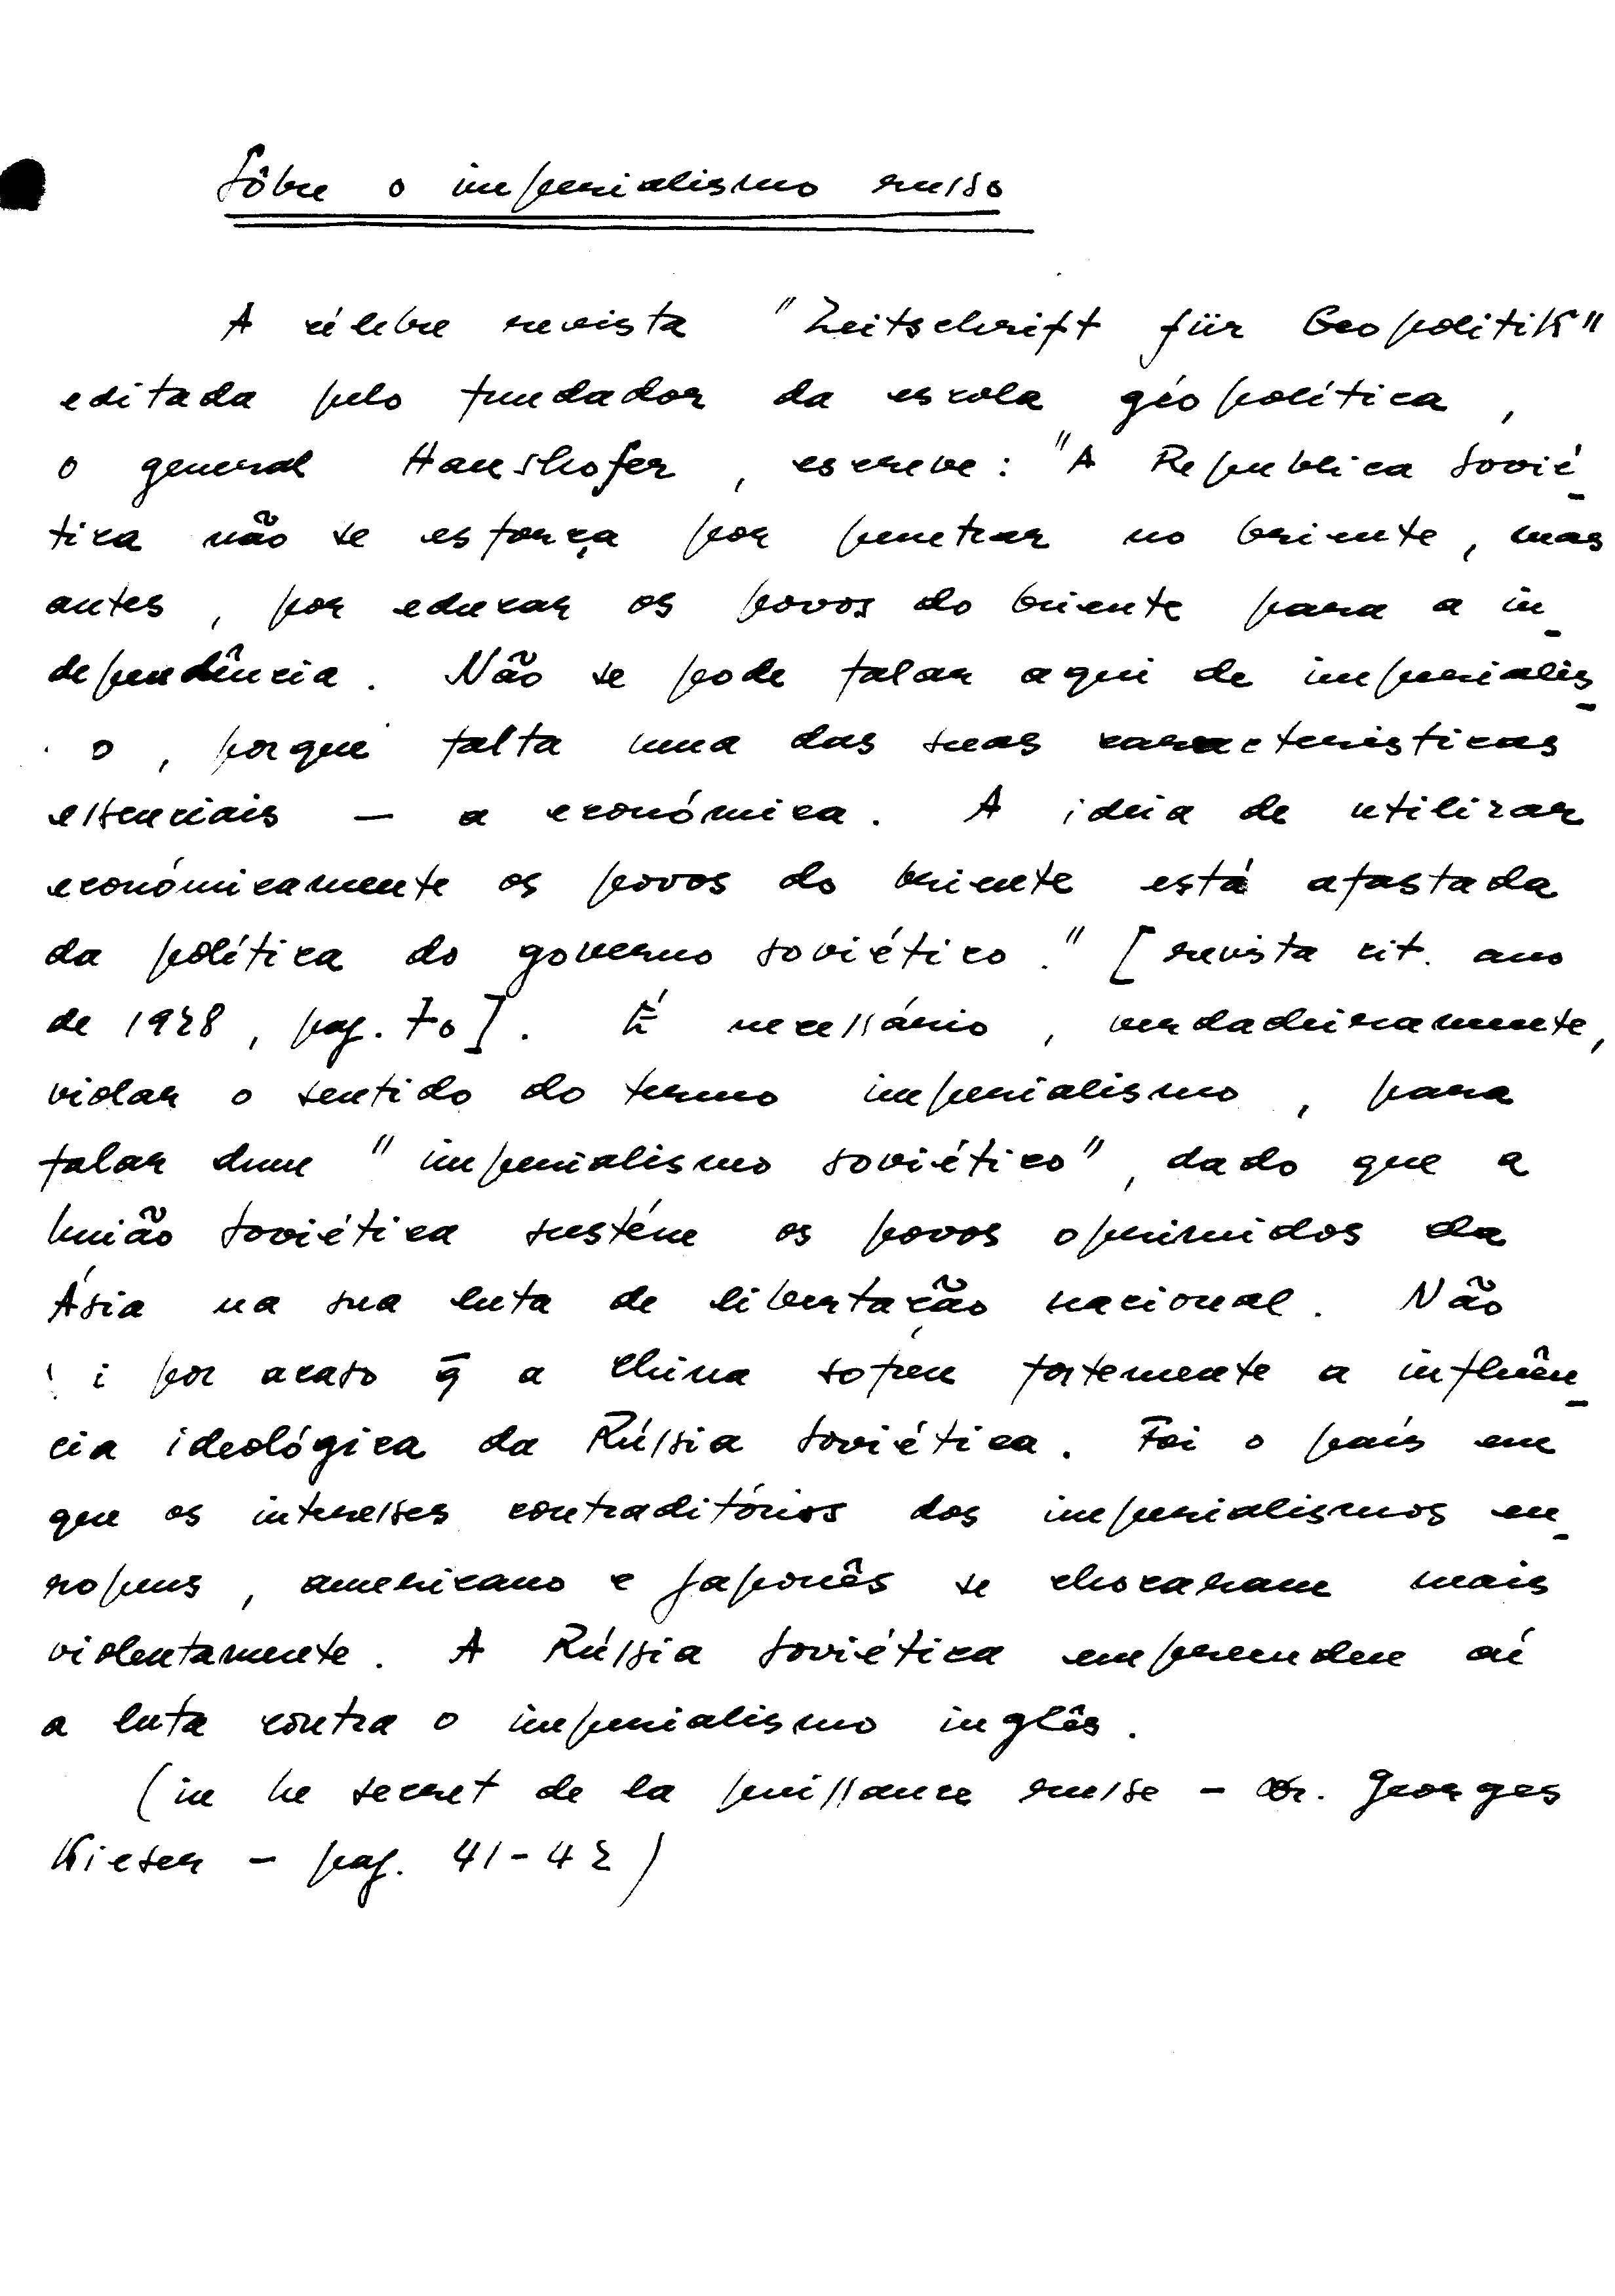 Sôbre o imperialismo russo
A célebre revista "Zeitschrift für Geopolitik"
editada pelo fundador da escola géopolítica,
o general Haushofer, escreve: "A Republica Sovié-
tica não se esforça por penetrar no Oriente, mas
antes, por educar os povos do Oriente para a in-
dependência. Não se pode falar aqui de imperialis-
o, porque falta uma das suas caracteristicas
essenciais — a económica. A ideia de utilizar
económicamente os povos do Oriente está afastada
da política do governo soviético." [revista cit. ano
de 1928, pag. 70]. É necessário, verdadeiramente,
violar o sentido do termo imperialismo, para
falar dum "imperialismo soviético", dado que a
União Soviética sustém os povos oprimidos da
Ásia na sua luta de libertação nacional. Não
i por acaso q̄ a China sofreu fortemente a influên-
cia ideológica da Rússia Soviética. Foi o país em
que os interesses contraditórios dos imperialismos eu-
ropeus, americano e japonês se chocaram mais
violentamente. A Rússia Soviética empreendeu aí
a luta contra o imperialismo inglês.
(in Le secret de la puissance russe - Dr. Georges
Kieser - pag. 41-42)